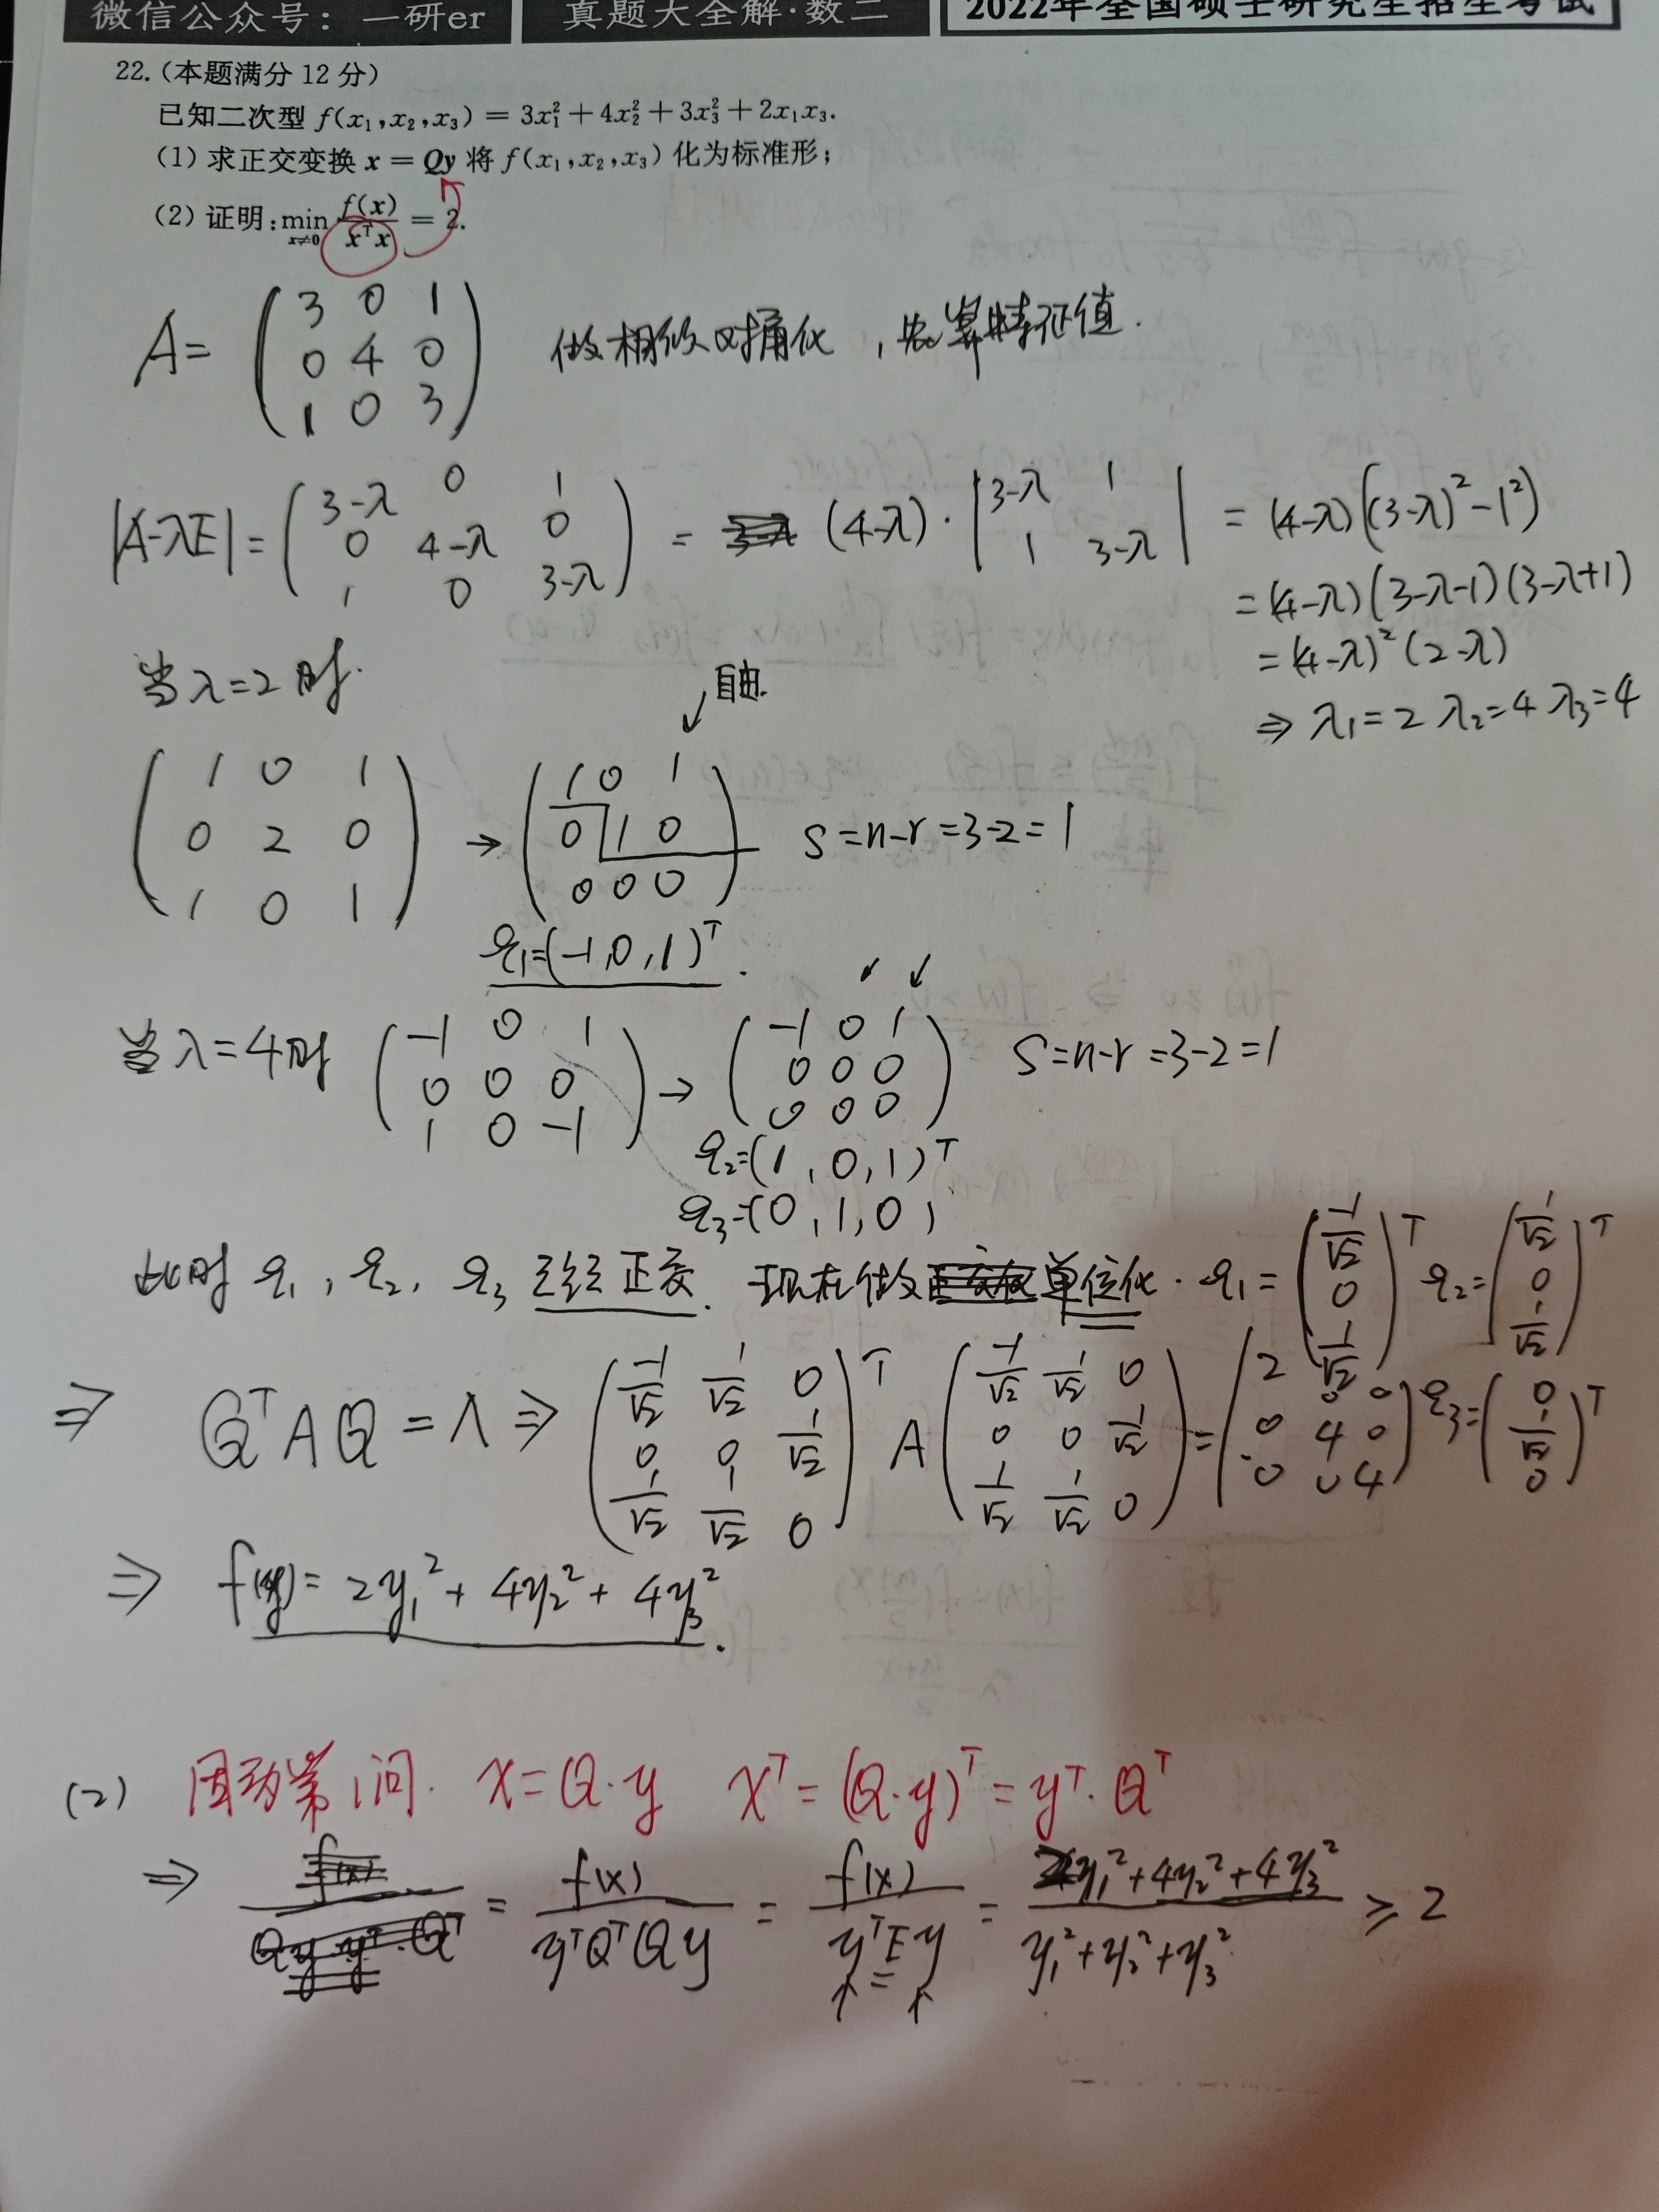 微信公众号：一研er 真题大全解·数二 2022年全国硕士研究生招生考试
22.(本题满分 12 分)
已知二次型 f(x₁,x₂,x₃) = 3x₁² + 4x₂² + 3x₃² + 2x₁x₃.
(1) 求正交变换 x = Qy 将 f(x₁,x₂,x₃) 化为标准形;
(2) 证明: min_{x≠0} f(x)/xᵀx = 2.
A = (3 0 1; 0 4 0; 1 0 3) 做相似对角化，先算特征值.
|A-λE| = (3-λ 0 1; 0 4-λ 0; 1 0 3-λ) = (4-λ)·|3-λ 1; 1 3-λ| = (4-λ)((3-λ)²-1²)
= (4-λ)(3-λ-1)(3-λ+1)
= (4-λ)²(2-λ)
⇒ λ₁=2 λ₂=4 λ₃=4
当λ=2时.
自由.
(1 0 1; 0 2 0; 1 0 1) → (1 0 1; 0 1 0; 0 0 0) S=n-r=3-2=1
ξ₁=(-1,0,1)ᵀ.
当λ=4时 (-1 0 1; 0 0 0; 1 0 -1) → (-1 0 1; 0 0 0; 0 0 0) S=n-r=3-2=1
ξ₂=(1,0,1)ᵀ
ξ₃=(0,1,0)
此时 ξ₁, ξ₂, ξ₃ 已经正交. 现在做单位化. ξ₁ = (-1/√2; 0; 1/√2)ᵀ ξ₂ = (1/√2; 0; 1/√2)ᵀ
ξ₃ = (0; 1/√2; 0)ᵀ
⇒ QᵀAQ = Λ ⇒ (-1/√2 1/√2 0; 0 0 1/√2; 1/√2 1/√2 0)ᵀ A (-1/√2 1/√2 0; 0 0 1/√2; 1/√2 1/√2 0) = (2 0 0; 0 4 0; 0 0 4)
⇒ f(y) = 2y₁² + 4y₂² + 4y₃².
(2) 因为第1问. x=Q·y xᵀ=(Q·y)ᵀ=yᵀ·Qᵀ
⇒ = f(x)/yᵀQᵀQy = f(x)/yᵀEy = 2y₁²+4y₂²+4y₃²/y₁²+y₂²+y₃² ≥ 2